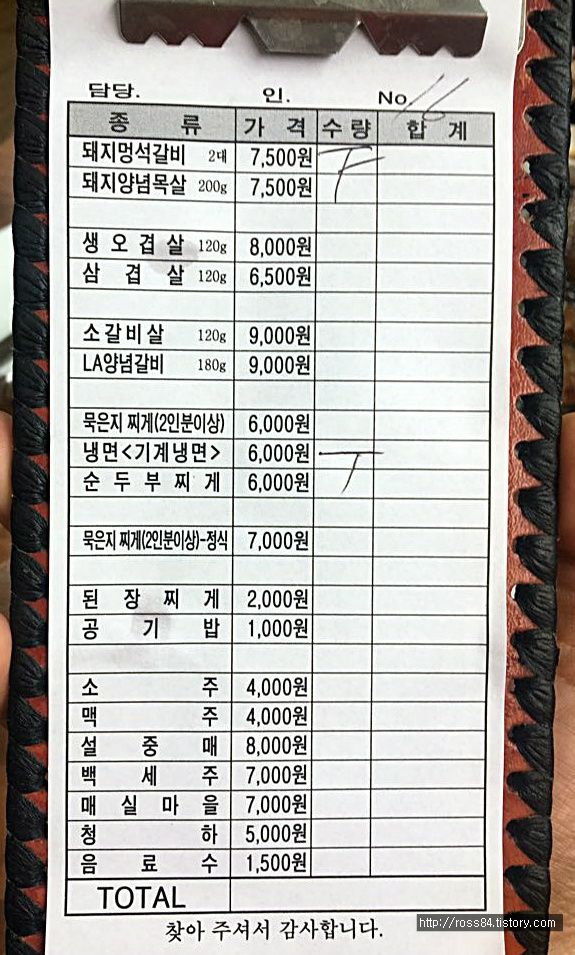 담당. 인. No 16
종 류 가 격 수 량 합 계
돼지멍석갈비 2대 7,500원
돼지양념목살 200g 7,500원
생 오 겹 살 120g 8,000원
삼 겹 살 120g 6,500원
소갈비살 120g 9,000원
LA양념갈비 180g 9,000원
묵은지 찌게(2인분이상) 6,000원
냉면<기계냉면> 6,000원
순 두 부 찌 게 6,000원
묵은지 찌게(2인분이상)-정식 7,000원
된 장 찌 게 2,000원
공 기 밥 1,000원
소 주 4,000원
맥 주 4,000원
설 중 매 8,000원
백 세 주 7,000원
매 실 마 을 7,000원
청 하 5,000원
음 료 수 1,500원
TOTAL
찾아 주셔서 감사합니다.
http://ross84.tistory.com